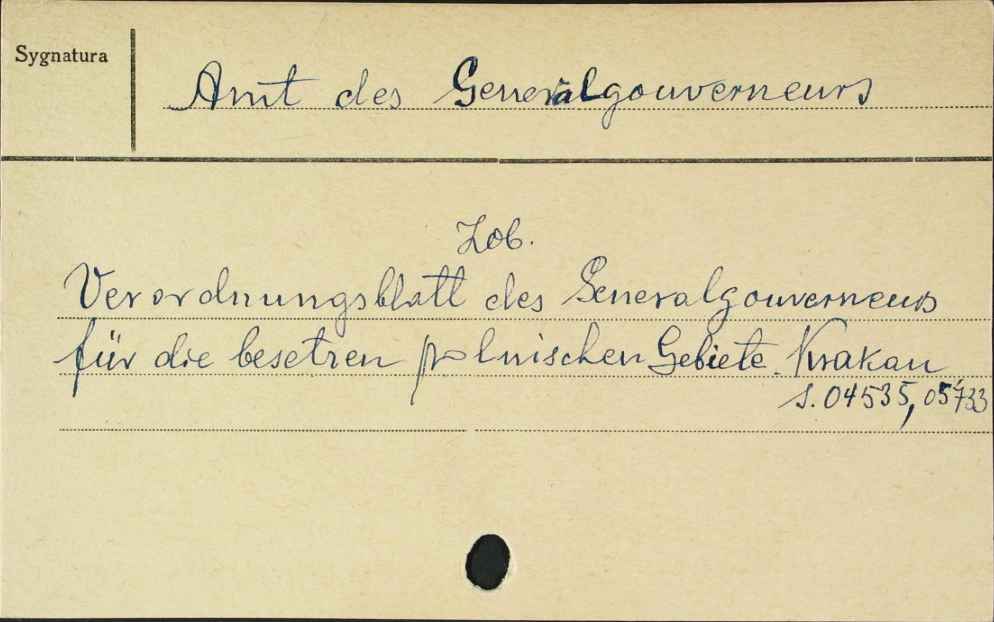 Sygnatura
Amt des Generalgouverneurs
Zob.
Verordnungsblatt des Generalgouverneurs
für die besetzen polnischen Gebiete. Krakau
S. 04535, 05733